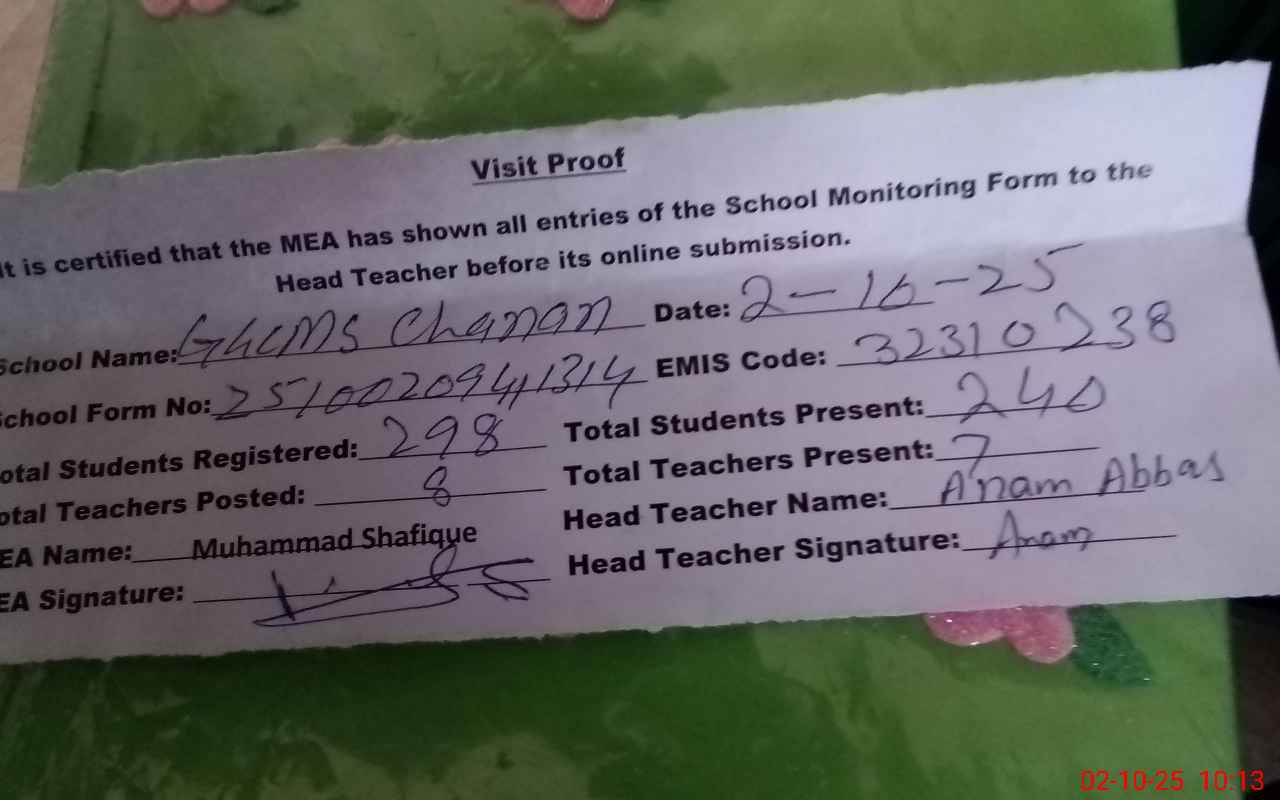 Visit Proof
It is certified that the MEA has shown all entries of the School Monitoring Form to the
Head Teacher before its online submission.
School Name: GHCMS Chanan Date: 2-10-25
School Form No: 25100209441314 EMIS Code: 32310238
otal Students Registered: 298 Total Students Present: 240
otal Teachers Posted: 8 Total Teachers Present: 7
EA Name: Muhammad Shafique Head Teacher Name: Anam Abbas
EA Signature: Head Teacher Signature: Anam
02-10-25 10:13